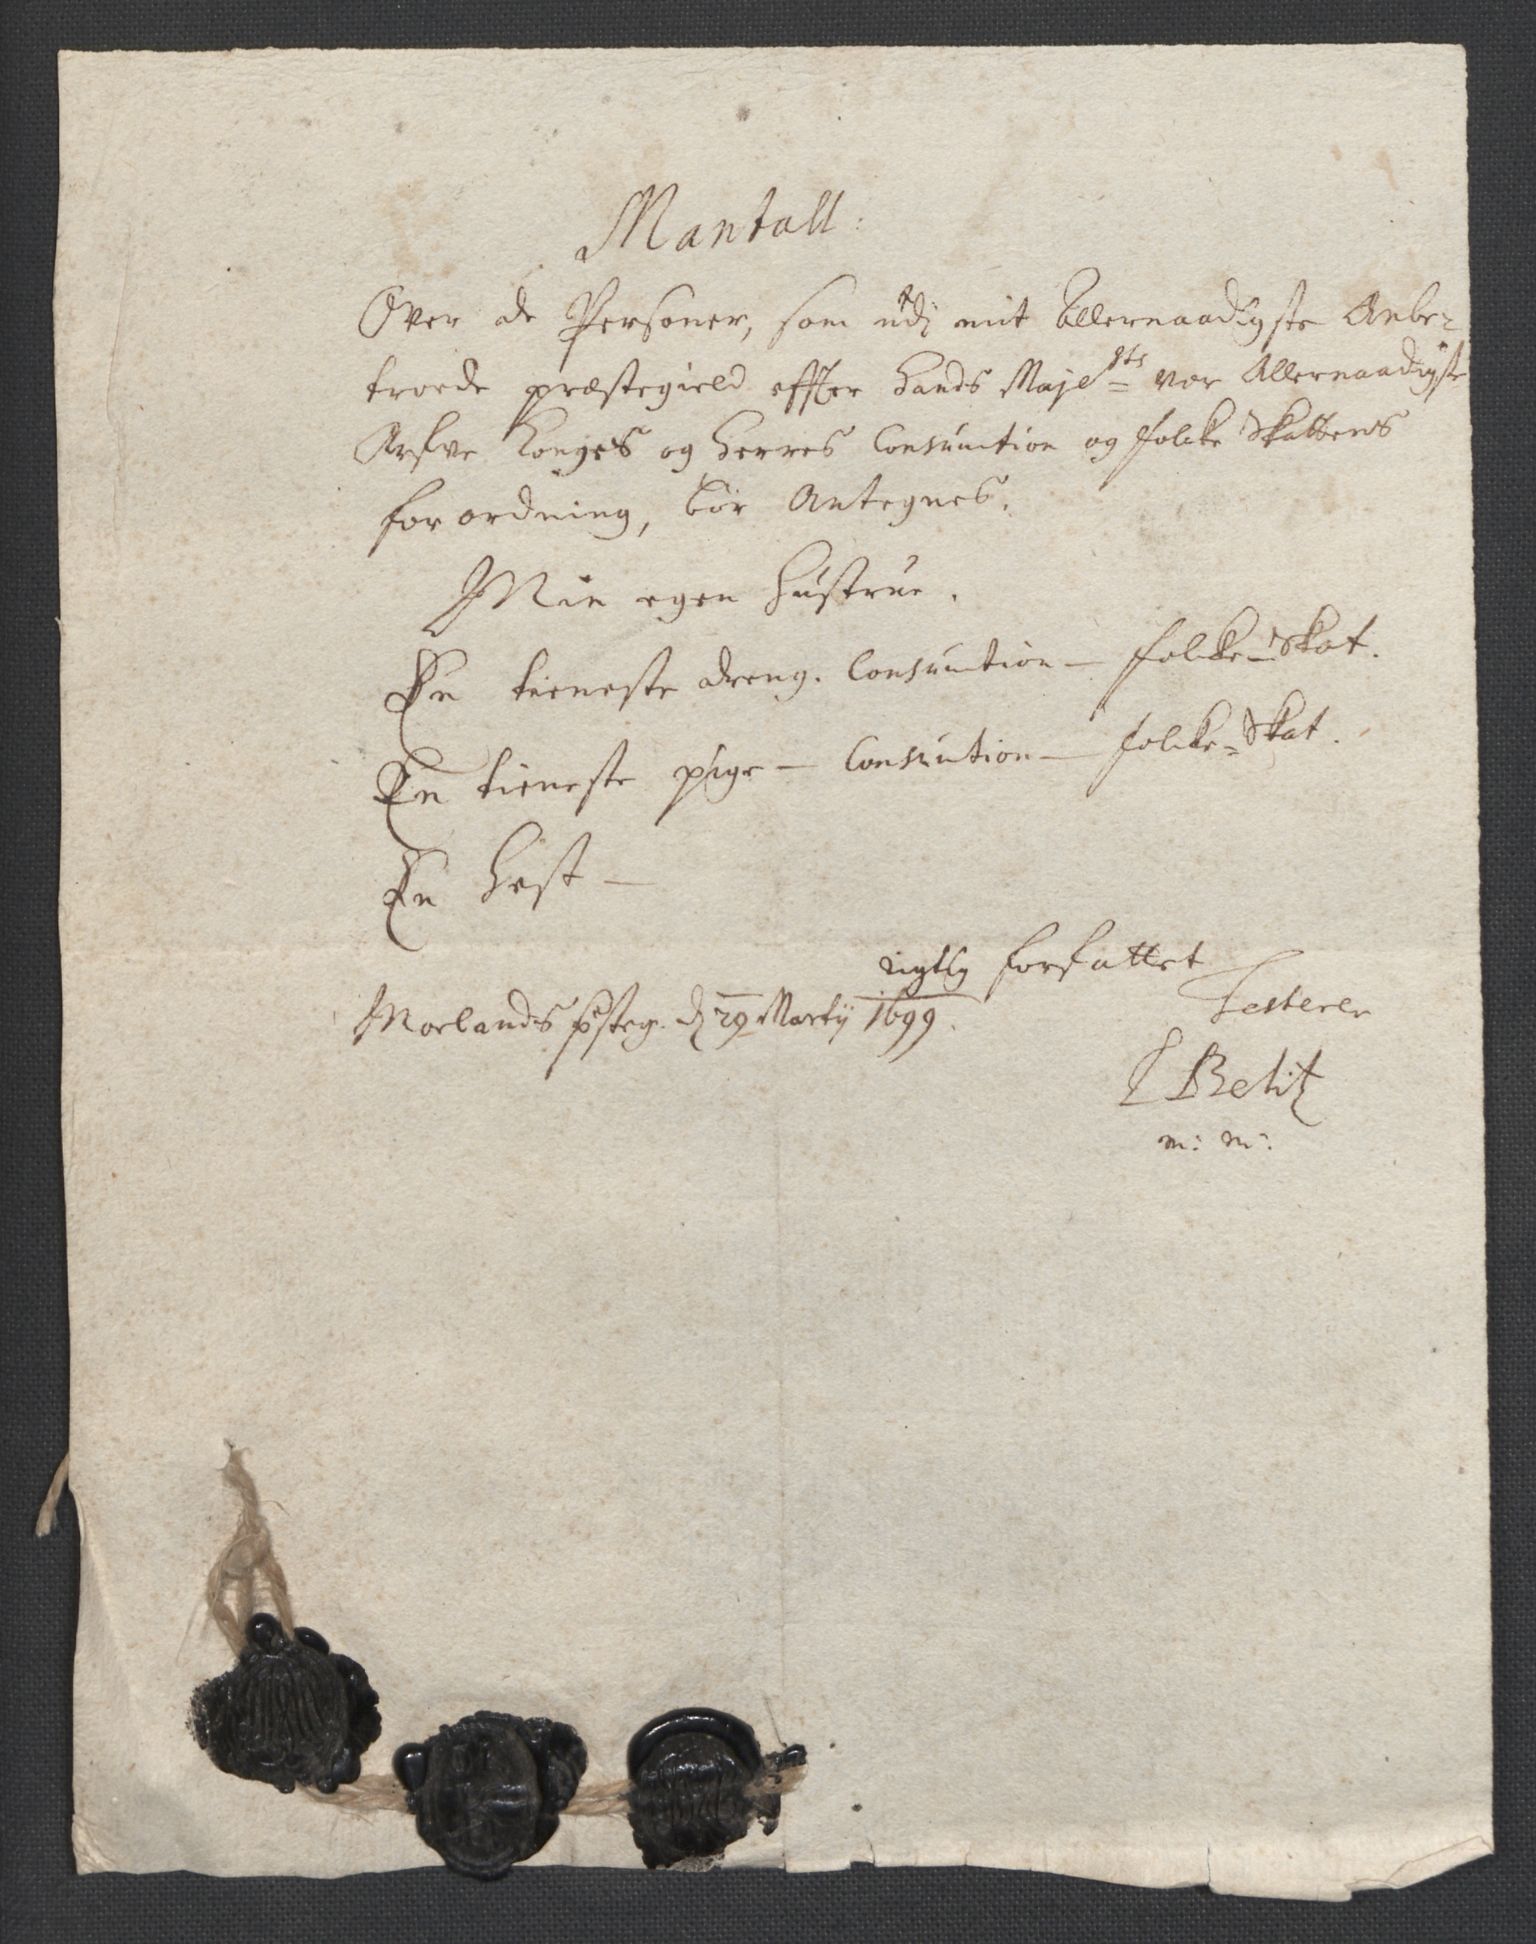 Mantall:
Over de Personer, som udi mit Allernaadigste Anbe-
troede præstegield effter Hands Maje^sts vor Allernaadigste
Arfve Konges og Herres Consumtion og folcke Skattens
forordning, bör Antegnes.
Min egen Hustrue.
En tieneste dreng. Consumtion — folcke-Skat.
En tieneste pige — Consumtion — folcke-Skat.
En Hest —
rigtig forfattet
Morlands psteg. d 29 Martij 1699.
Testerer
Belitz
m: m: